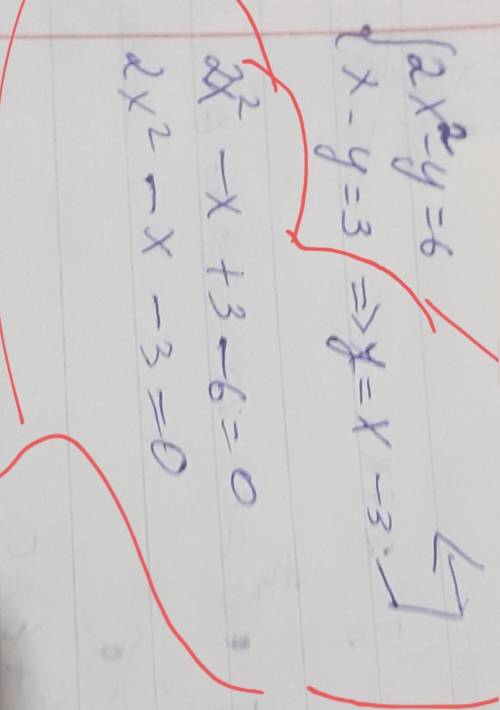 2x²-y=6
x-y=3 => y=x-3
2x² -x +3-6=0
2x² -x -3=0